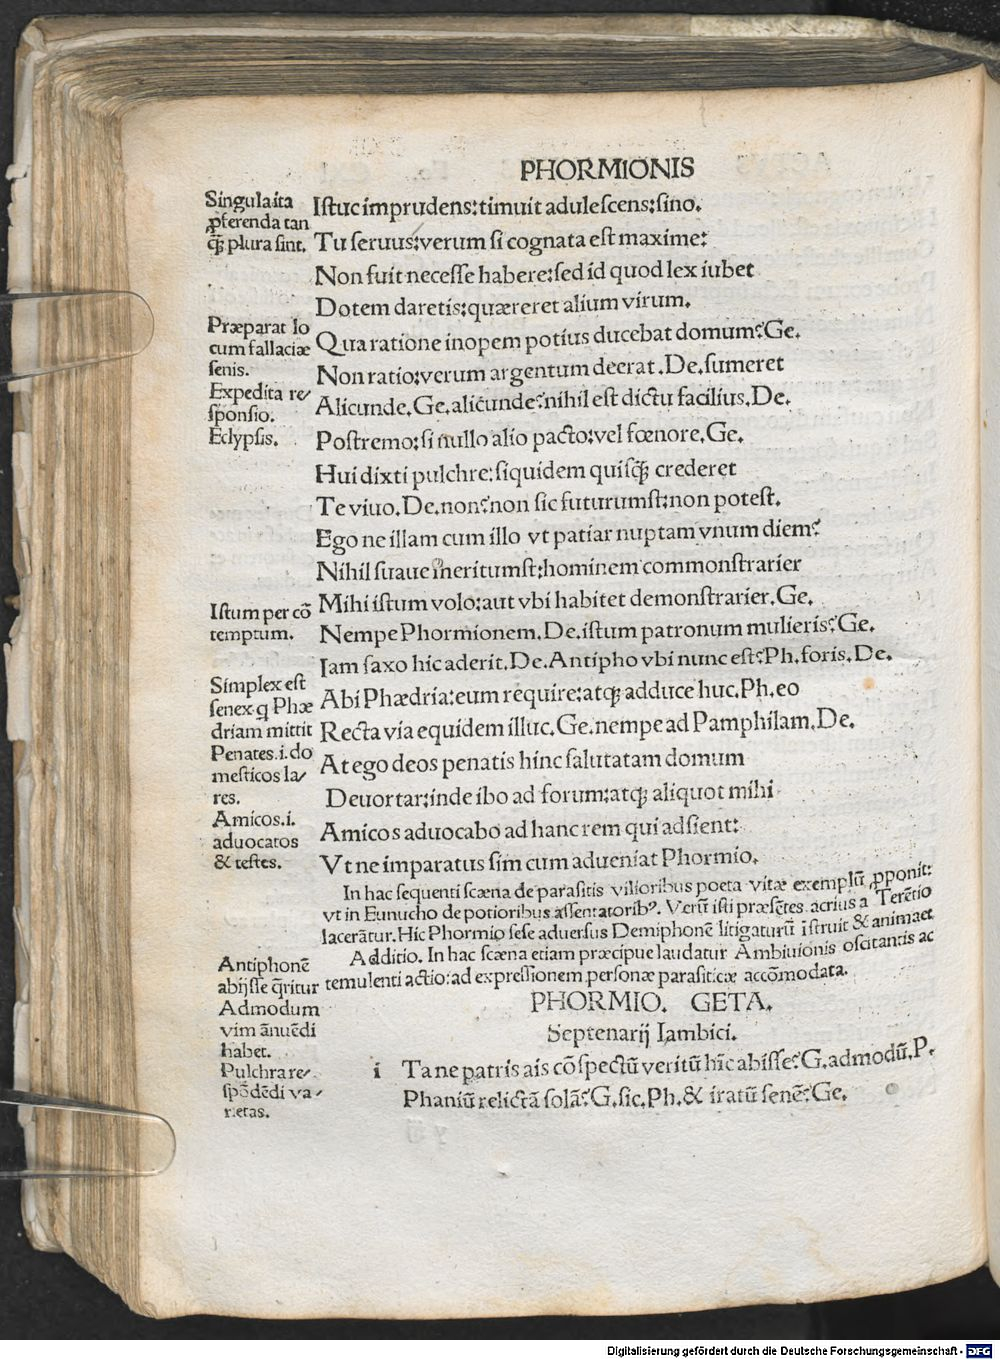 PHORMIONIS
Singula ita
ꝓferenda tan
ꝙ̃ plura sint.
Præparat lo
cum fallaciæ
senis.
Expedita re/
sponsio.
Eclypsis.
Istum per cõ
temptum.
Simplex est
senex q Phæ
driam mittit
Penates.i.do
mesticos la/
res.
Amicos.i.
aduocatos
& testes.
Antiphonẽ
abijsse q̃ritur
Admodum
vim ãnuẽdi
habet.
Pulchra re/
spõdẽdi va/
rietas.
Istuc imprudens:timuit adulescens:sino.
Tu seruus:verum si cognata est maxime:
Non fuit necesse habere:sed id quod lex iubet
Dotem daretis:quæreret alium virum.
Qua ratione inopem potius ducebat domum?Ge.
Non ratio:verum argentum deerat.De.sumeret
Alicunde.Ge.alicunde?nihil est dictu facilius.De.
Postremo:si nullo alio pacto:vel fœnore.Ge.
Hui dixti pulchre:siquidem quisꝙ̃ crederet
Te viuo.De.non?non sic futurumst:non potest.
Ego ne illam cum illo vt patiar nuptam vnum diem?
Nihil suaue meritumst:hominem commonstrarier
Mihi istum volo:aut vbi habitet demonstrarier.Ge.
Nempe Phormionem.De.istum patronum mulieris?Ge.
Iam faxo hic aderit.De.Antipho vbi nunc est?Ph.foris.De.
Abi Phædria:eum require:atq; adduce huc.Ph.eo
Recta via equidem illuc.Ge.nempe ad Pamphilam.De.
At ego deos penatis hinc salutatam domum
Deuortar:inde ibo ad forum:atq; aliquot mihi
Amicos aduocabo ad hanc rem qui adsient:
Vt ne imparatus sim cum adueniat Phormio.
In hac sequenti scæna de parasitis vilioribus poeta vitæ exemplũ ꝓponit:
vt in Eunucho de potioribus assentatoribꝰ. Verũ isti præsẽtes acrius a Terẽtio
lacerãtur.Hic Phormio sese aduersus Demiphonẽ litigaturũ ĩstruit & animaet
Additio. In hac scæna etiam præcipue laudatur Ambiuionis oscitantis ac
temulenti actio:ad expressionem personæ parasiticæ accõmodata.
PHORMIO. GETA.
Septenarij Iambici.
i Ta ne patris ais cõspectũ veritũ hĩc abisse?G.admodũ.P.
Phaniũ relictã solã?G.sic.Ph.& iratũ senẽ?Ge.
Digitalisierung gefördert durch die Deutsche Forschungsgemeinschaft - DFG